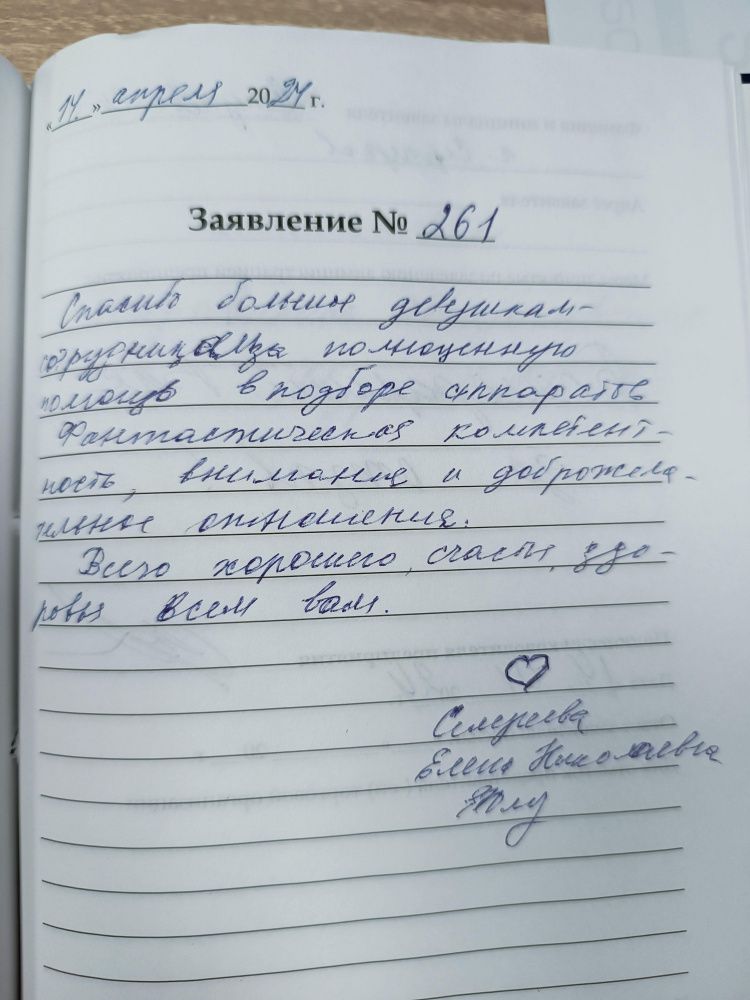 «14.» апреля 2024 г.
Заявление № 261
Спасибо большое девушкам-
сотрудницам за полноценную
помощь в подборе аппаратов
Фантастическая компетент-
ность, внимания и доброжела-
тельное отношения.
Всего хорошего, счастья, здо-
ровья всем вам.
Елена Николаевна